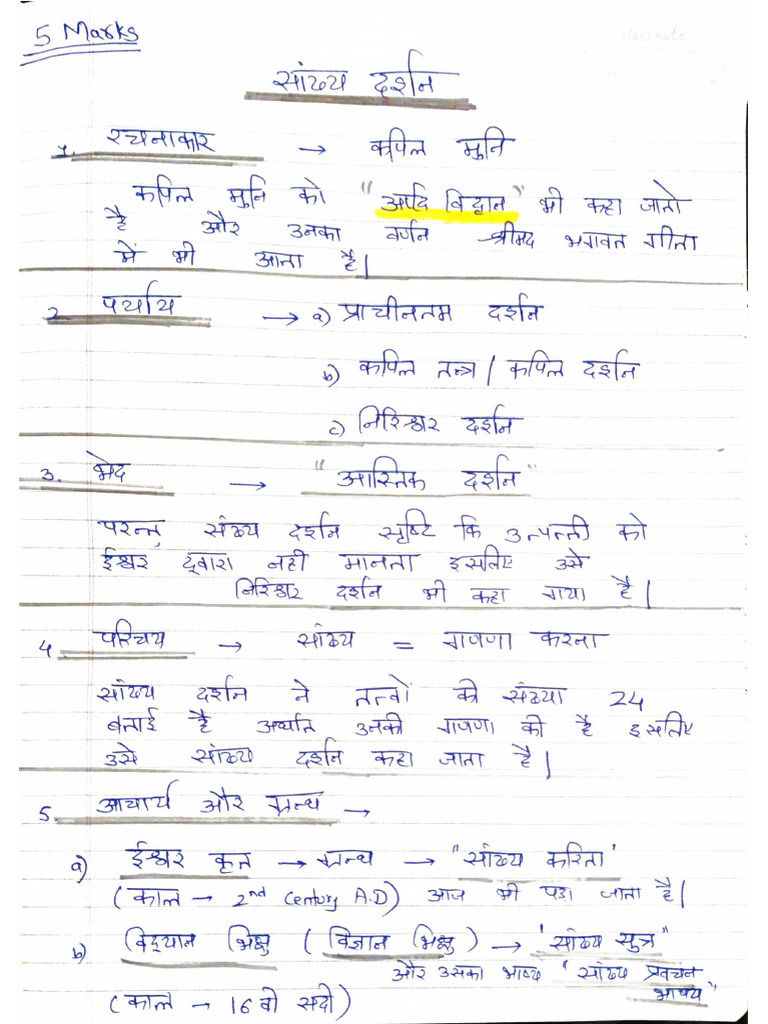 5 Marks
सांख्य दर्शन
1. रचनाकार → कपिल मुनि
कपिल मुनि को "आदि विद्वान" भी कहा जाता
है और उनका वर्णन श्रीमद भगवत गीता
में भी आता है।
2. पर्याय → a) प्राचीनतम दर्शन
b) कपिल तन्त्र / कपिल दर्शन
c) निरिश्वर दर्शन
3. भेद → "आस्तिक दर्शन"
परन्तु संख्य दर्शन सृष्टि कि उत्पत्ती को
ईश्वर द्वारा नही मानता इसलिए उसे
निरिश्वर दर्शन भी कहा गया है।
4. परिचय → सांख्य = गणणा करना
सांख्य दर्शन ने तत्वों की संख्या 24
बताई है अर्थात उनकी गणणा की है इसलिए
उसे सांख्य दर्शन कहा जाता है।
5. आचार्य और ग्रन्थ →
a) ईश्वर कृत → ग्रन्थ → "सांख्य करिता'
(काल → 2nd Century A.D) आज भी पढा जाता है।
b) विद्यान भिक्षु (विज्ञान भिक्षु) → 'सांख्य सुत्र"
और उसका भाष्य 'सांख्य प्रवचन
भाष्य"
(काल → 16 वी सदी)